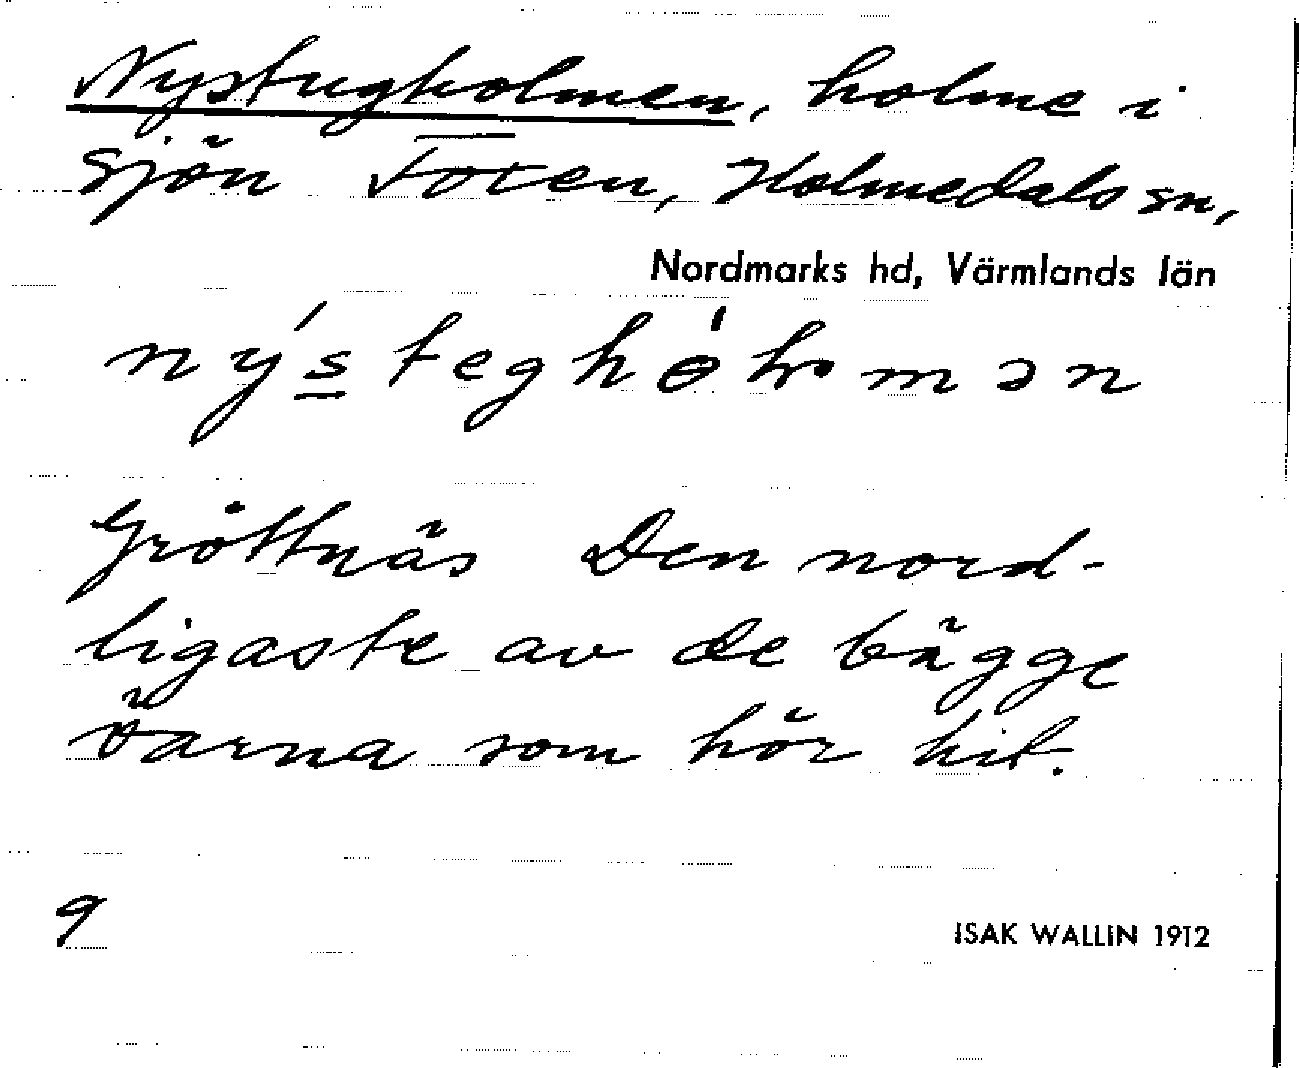 Nystugholmen, holme i
sjön Foxen, Holmedals sn,
Nordmarks hd, Värmlands län
Gröttnäs Den nord-
ligaste av de bägge
öarna som hör hit.
9
ISAK WALLIN 1912